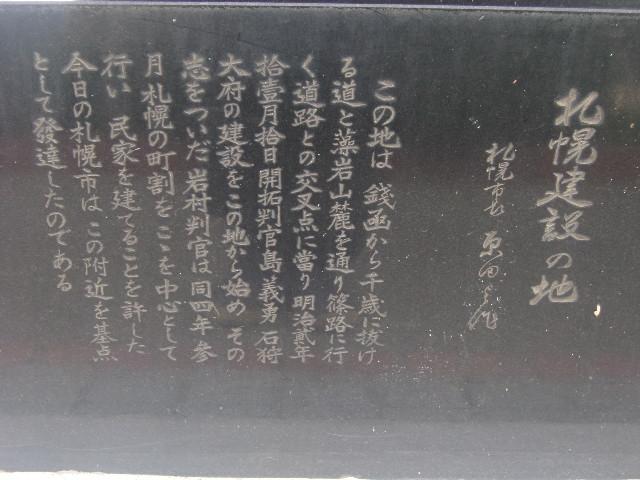 札幌建設の地
札幌市長 原田與作
この地は 銭函から千歳に抜け
る道と藻岩山麓を通り篠路に行
く道路との交叉点に當り明治貳年
拾壹月拾日開拓判官島義勇石狩
大府の建設をこの地から始め その
志をついだ岩村判官は同四年参
月札幌の町割をこゝを中心として
行い 民家を建てることを許した
今日の札幌市は この附近を基点
として發達したのである